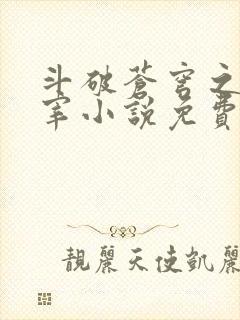 斗破蒼穹之
宰小說免費
靚麗天使凱麗